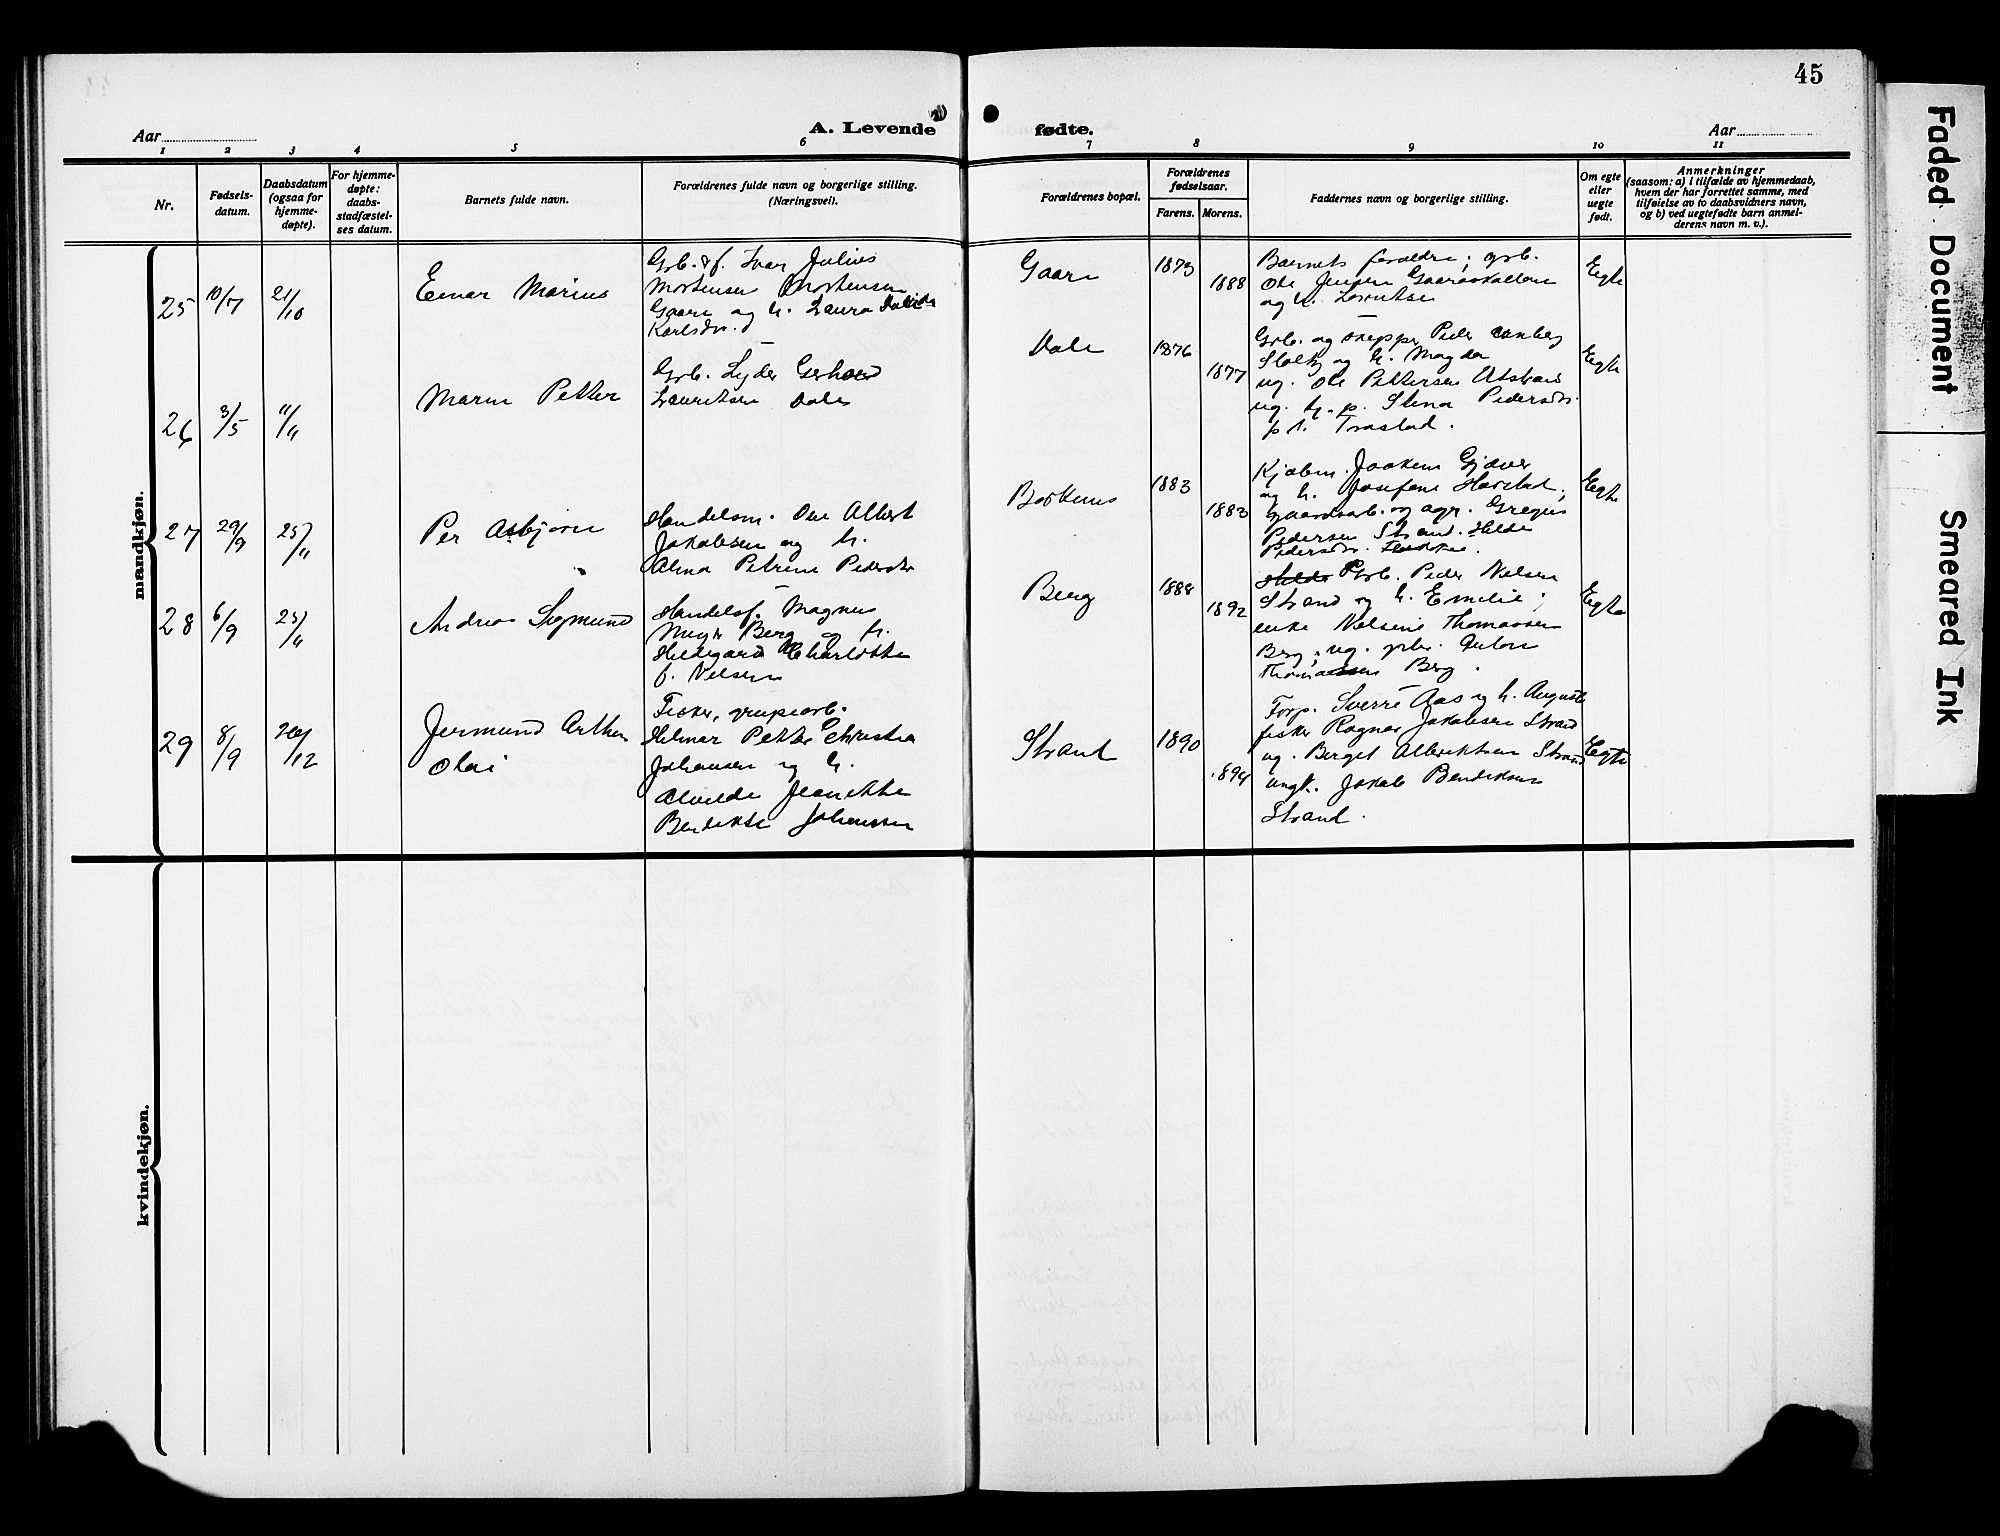 45
Aar
A. Levende
fødte.
Aar
1 2 3 4 5 6 7 8 9 10 11
Nr.
Fødsels-
datum.
Daabsdatum
(ogsaa for
hjemme-
døpte).
For hjemme-
døpte:
daabs-
stadfæstel-
ses datum.
Barnets fulde navn.
Forældrenes fulde navn og borgerlige stilling.
(Næringsvei).
Forældrenes bopæl.
Forældrenes
fødselsaar.
Farens. Morens.
Faddernes navn og borgerlige stilling.
Om egte
eller
uegte
født.
Anmerkninger
(saasom: a) i tilfælde av hjemmedaab,
hvem der har forrettet samme, med
tilføielse av to daabsvidners navn,
og b) ved uegtefødte barn anmel-
derens navn m. v.).
mandkjøn.
25 10/7 21/10
Einar Marius
Grb. & f. Ivar Julius
Mortensen Mortensen
Gaare og h. Laura
Karlsdtr.
Gaare
1873
1888
Barnets forældre; grb.
Ole Jensen
og h.
Egte
26 3/5 11/11
Marin Petter
Grb. Lyder Gerhard
Lauritsen Dale
Dale
1876
1877
Grb. og skipper Peder
og h. Magda
ug. Ole Pettersen
ug. h. p. Stina Pedersdtr.
p. t. Trastad.
Egte
27 29/9 25/11
Per Asbjørn
Handelsm. Ole Albert
Jakobsen og h.
Alma Petrine
Borkenes
1883
1883
Kjøbm. Joakim Gjæver
og h. Josefine Harstad;
gaardsarb. og agr.
Pedersen Strand. Hilda
Pedersdtr.
Egte
28 6/9 25/11
Andreas Sigmund
Handelsf. Magnus
Berg og h.
Hildegard Charlotte
f. Nilsen
Berg
1888
1892
Grb. Peder Nilsen
Strand og h. Emelie;
enke Nilsine Thomassen
Berg; ug. grbr. Anton
Thomassen Berg.
Egte
29 8/9 26/12
Jermund Arthur
Olai
Fisker, grubearb.
Hilmar Petter Christian
Johansen og h.
Alvilde Jeanette
Johansen
Strand
1890
1894
Forp. Sverre Aas og h. Auguste
fisker Ragnar Jakobsen Strand
ug. Berget Albriktsen Strand
ungk. Jakob Bendiksen
Strand.
Egte
kvindekjøn.
Faded Document
Smeared Ink